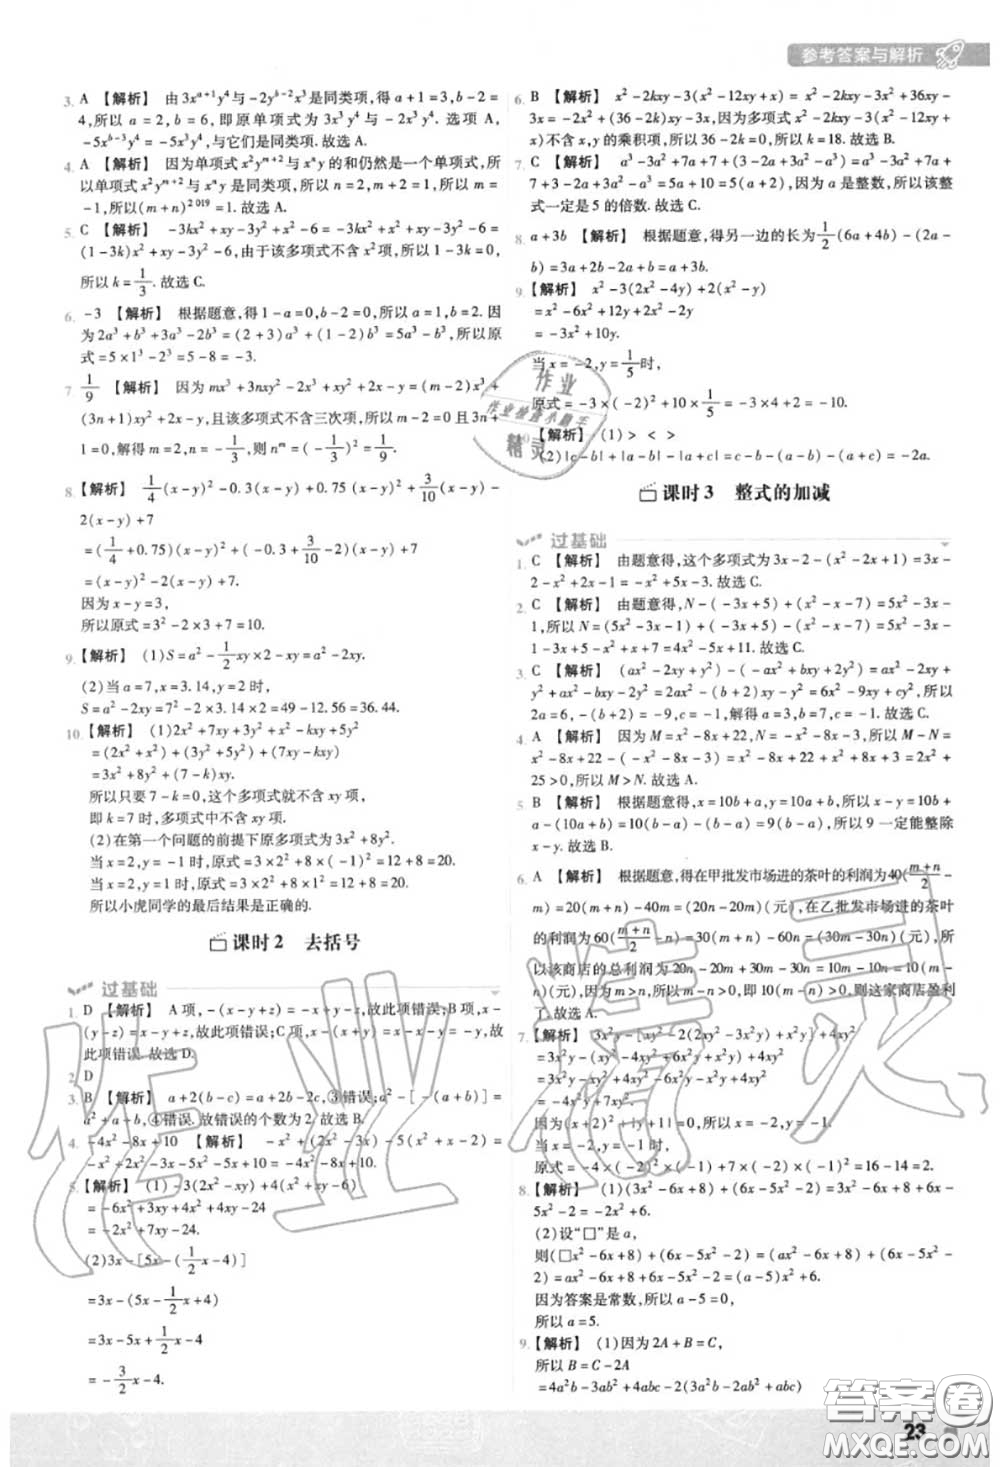 参考答案与解析
3. A 【解析】 由 3xᵃ⁺¹y⁴与 -2yᵇ⁻²x³是同类项,得 a+1=3,b-2=
4,所以 a=2,b=6,即原单项式为 3x³y⁴与 -2x³y⁴. 选项 A,
-5xᵇ⁻³yᵃ=-5x³y⁴,与它们是同类项.故选 A.
4. A 【解析】 因为单项式 x²yᵐ⁺²与 xⁿy 的和仍然是一个单项式,所
以单项式 x²yᵐ⁺²与 xⁿy 是同类项,所以 n=2,m+2=1,所以 m=
-1,所以(m+n)²⁰¹⁹=1.故选 A.
5. C 【解析】 -3kx²+xy-3y²+x²-6=
(1-3k)x²+xy-3y²-6,由于该多项式不含 x²项,所以1-3k=0,
所以 k=1/3.故选 C.
6. -3 【解析】 根据题意,得 1-a=0,b-2=0,所以 a=1,b=2.因
为 2a³+b³+3a³-2b³=(2+3)a³+(1-2)b³=5a³-b³,所以原
式=5×1³-2³=5-8=-3.
7 1/9 【解析】 因为 mx³+3nxy²-2x³+xy²+2x-y=(m-2)x³+
(3n+1)xy²+2x-y,且该多项式不含三次项,所以 m-2=0 且 3n+
1=0,解得 m=2,n=-1/3,则 nᵐ=(-1/3)²=1/9.
8. 【解析】 1/4(x-y)²-0.3(x-y)+0.75(x-y)²+3/10(x-y)-
2(x-y)+7
=(1/4+0.75)(x-y)²+(-0.3+3/10-2)(x-y)+7
=(x-y)²-2(x-y)+7.
因为 x-y=3,
所以原式=3²-2×3+7=10.
9. 【解析】 (1)S=a²-1/2xy×2-xy=a²-2xy.
(2)当 a=7,x=3.14,y=2 时,
S=a²-2xy=7²-2×3.14×2=49-12.56=36.44.
10. 【解析】 (1)2x²+7xy+3y²+x²-kxy+5y²
=(2x²+x²)+(3y²+5y²)+(7xy-kxy)
=3x²+8y²+(7-k)xy.
所以只要 7-k=0,这个多项式就不含 xy 项,
即 k=7 时,多项式中不含 xy 项.
(2)在第一个问题的前提下原多项式为 3x²+8y².
当 x=2,y=-1 时,原式=3×2²+8×(-1)²=12+8=20.
当 x=2,y=1 时,原式=3×2²+8×1²=12+8=20.
所以小虎同学的最后结果是正确的.
课时2 去括号
过基础
1. D 【解析】 A 项,-(-x+y)=
2. D
3. B 【解析】 a+2(b-c)=a+2b-2c,③错误;a²-[-(-a+b)]=
a²+a+b,④错误.故错误的个数为 2.故选 B.
4. -4x²-8x+10 【解析】 -x²+(2x²-3x)-5(x²+x-2)=
5. 【解析】 (1)-3(2x²-xy)+4(x²+xy-6)
=-6x²+3xy+4x²+4xy-24
=-2x²+7xy-24.
(2)3x-[5x-(1/2x-4)]
=3x-(5x-1/2x+4)
=3x-5x+1/2x-4
=-3/2x-4.
6. B 【解析】 x²-2kxy-3(x²-12xy+x)=x²-2kxy-3x²+36xy-
3x=-2x²+(36-2k)xy-3x,因为多项式 x²-2kxy-3(x²-12xy+
x)不含 x,y 的乘积项,所以 36-2k=0,所以 k=18.故选 B.
7. C 【解析】 a³-3a²+7a+7+(3-2a+3a²-a³)=a³-3a²+7a+
7+3-2a+3a²-a³=5a+10=5(a+2),因为 a 是整数,所以该整
式一定是 5 的倍数.故选 C.
8. a+3b 【解析】 根据题意,得另一边的长为1/2(6a+4b)-(2a-
b)=3a+2b-2a+b=a+3b.
9. 【解析】 x²-3(2x²-4y)+2(x²-y)
=x²-6x²+12y+2x²-2y
=-3x²+10y.
当 x=-2,y=1/5时,
原式=-3×(-2)²+10×1/5=-3×4+2=-10.
【解析】 (1)> < >
(2)|c-b|+|a-b|-|a+c|=c-b-(a-b)-(a+c)=-2a.
课时3 整式的加减
过基础
1. C 【解析】 由题意得,这个多项式为 3x-2-(x²-2x+1)=3x-
2-x²+2x-1=-x²+5x-3.故选 C.
2. C 【解析】 由题意得,N-(-3x+5)+(x²-x-7)=5x²-3x-
1,所以 N=(5x²-3x-1)+(-3x+5)-(x²-x-7)=5x²-3x-
1-3x+5-x²+x+7=4x²-5x+11.故选 C.
3. C 【解析】 (ax²-2xy+y²)-(-ax²+bxy+2y²)=ax²-2xy+
2a=6,-(b+2)=-9,c=-1,解得 a=3,b=7,c=-1.故选 C.
4. A 【解析】 因为 M=x²-8x+22,N=-x²-8x-3,所以 M-N=
x²-8x+22-(-x²-8x-3)=x²-8x+22+x²+8x+3=2x²+
25>0,所以 M>N.故选 A.
5. B 【解析】 根据题意得,x=10b+a,y=10a+b,所以 x-y=10b+
a-(10a+b)=10(b-a)-(b-a)=9(b-a),所以 9 一定能整除
x-y.故选 B.
6. A 【解析】 根据题意,得在甲批发市场进的茶叶的利润为40((m+n)/2-
m)=20(m+n)-40m=(20n-20m)(元),在乙批发市场进的茶叶
的利润为 60((m+n)/2-n)=30(m+n)-60n=(30m-30n)(元),所
以该商店的总利润为 20n-20m+30m-30n=10m-10n=10(m-
n)(元),因为 m>n,所以 m-n>0,即 10(m-n)>0,则这家商店盈利
了.故选 A.
7. 【解析】 3x²y-[xy²-2(2xy²-3x²y)+x²y]+4xy²
=3x²y-xy²+4xy²-6x²y-x²y+4xy²
=-4x²y+7xy².
因为(x+2)²+|y+1|=0,所以 x=-2,y=-1.
当 x=-2,y=-1 时,
原式=-4×(-2)²×(-1)+7×(-2)×(-1)²=16-14=2.
8. 【解析】 (1)(3x²-6x+8)+(6x-5x²-2)=3x²-6x+8+6x-
5x²-2=-2x²+6.
(2)设“□”是 a,
则(□x²-6x+8)+(6x-5x²-2)=(ax²-6x+8)+(6x-5x²-
2)=ax²-6x+8+6x-5x²-2=(a-5)x²+6.
因为答案是常数,所以 a-5=0,
所以 a=5.
9. 【解析】 (1)因为 2A+B=C,
所以 B=C-2A
=4a²b-3ab²+4abc-2(3a²b-2ab²+abc)
23
作业精灵
作业检查小助手
答案圈
MXQE.COM